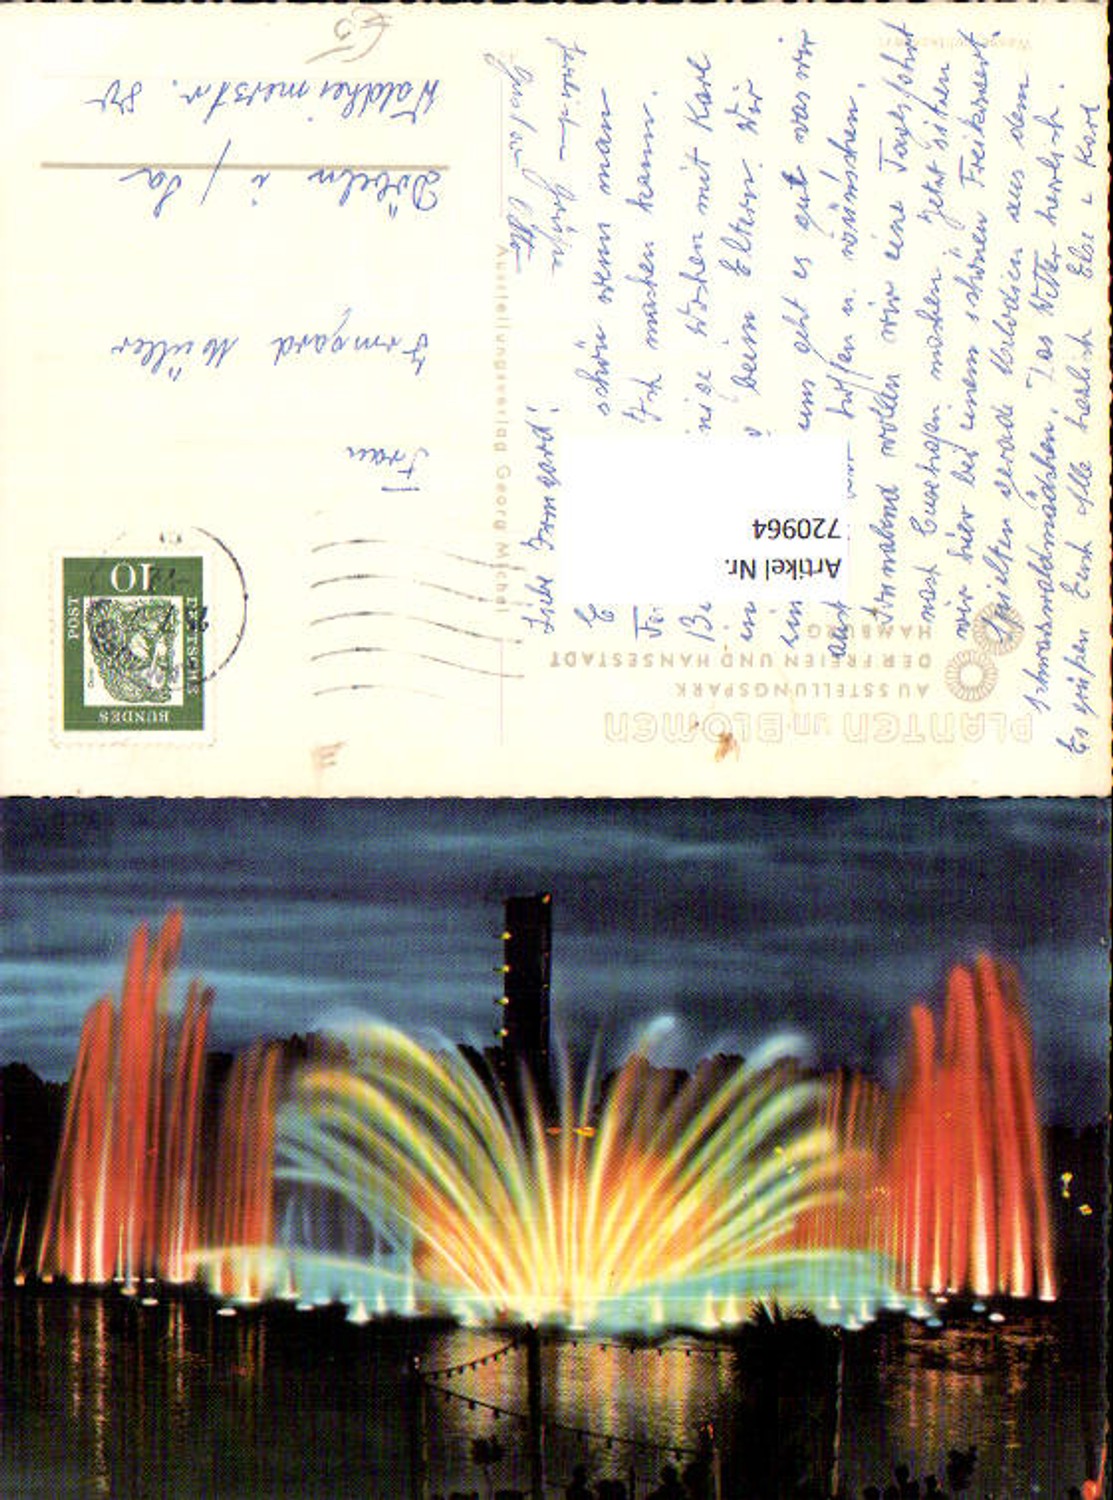 Liebe Irmgard!
schön wenn man
Ich machen kann.
nige Wochen mit Karl
beim Eltern. Wir
uns geht es gut was wir
hoffen u. wünschen.
Sonnabend wollen wir eine Tagesfahrt
nach Cuxhafen machen. Jetzt sitzen
wir hier bei einem schönen Freikonzert.
Spielten gerade Melodien aus dem
Schwarzwaldmädchen. Das Wetter herrlich.
Es grüßen Euch alle herzlich Else u Karl
Frau
Irmgard Müller
Döbeln i/Sa
Waldheimerstr.
PLANTEN un BLOMEN
AUSSTELLUNGSPARK
DER FREIEN UND HANSESTADT
HAMBURG
Ausstellungsverlag Georg Michel
DEUTSCHE
BUNDES
POST
10
Artikel Nr.
720964